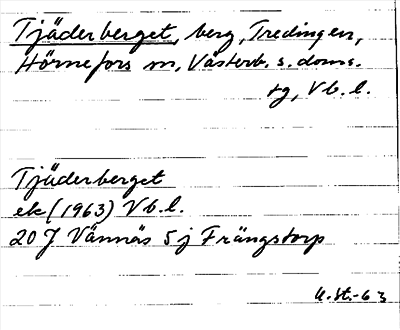 Tjäderberget, berg, Tredingen,
Hörnefors sn, Västerb. s. doms.
tg, Vb. l.
Tjäderberget
ek (1963) Vb. l.
20 J Vännäs 5 j Frängstorp
U. St. -63